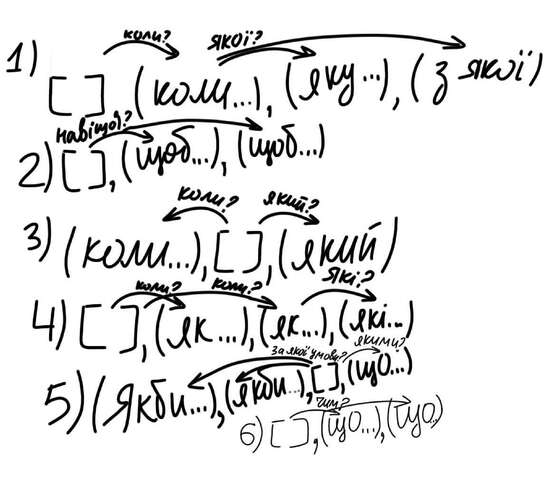 коли? якої?
1) [ ] (коли...), (яку...), (з якої)
навіщо?
2) [ ], (щоб...), (щоб...)
коли? який?
3) (коли...), [ ], (який)
коли? коли? які?
4) [ ], (як...), (як...), (які...)
за якої умови? якими?
5) (Якби...), (якби...), [ ], (що...)
чим?
6) [ ], (що...), (що)